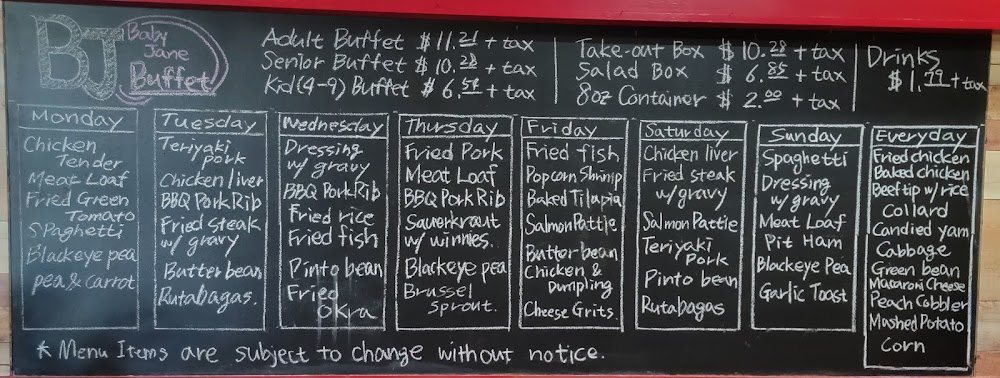 BJ
Baby
Jane
Buffet
Adult Buffet $ 11.21 + tax
Senior Buffet $ 10.28 + tax
Kid(4-9) Buffet $ 6.54 + tax
Take-out Box $ 10.28 + tax
Salad Box $ 6.85 + tax
8oz Container $ 2.00 + tax
Drinks
$ 1.79 + tax
Monday
Chicken
Tender
Meat Loaf
Fried Green
Tomato
SPaghetti
Blackeye pea
pea & Carrot
Tuesday
Teriyaki
pork
Chicken liver
BBQ Pork Rib
Fried steak
w/ gravy
Butter bean
Rutabagas.
Wednesday
Dressing
w/ gravy
BBQ Pork Rib
Fried rice
Fried fish
Pinto bean
Fried
Okra
Thursday
Fried Pork
Meat Loaf
BBQ Pork Rib
Sauerkraut
w/ winnies.
Blackeye pea
Brussel
sprout.
Friday
Fried fish
Popcorn Shrimp
Baked Tilapia
Salmon Pattie
Butter bean
Chicken &
Dumpling
Cheese Grits.
Saturday
Chicken liver
Fried steak
w/ gravy
Salmon Pattie
Teriyaki
Pork
Pinto bean
Rutabagas
Sunday
Spaghetti
Dressing
w/ gravy
Meat Loaf
Pit Ham
Blackeye Pea
Garlic Toast
Everyday
Fried chicken
Baked chicken
Beef tip w/ rice
Collard
Candied yam
Cabbage
Green bean
Macaroni Cheese
Peach Cobbler
Mashed Potato
Corn
* Menu Items are subject to change without notice.